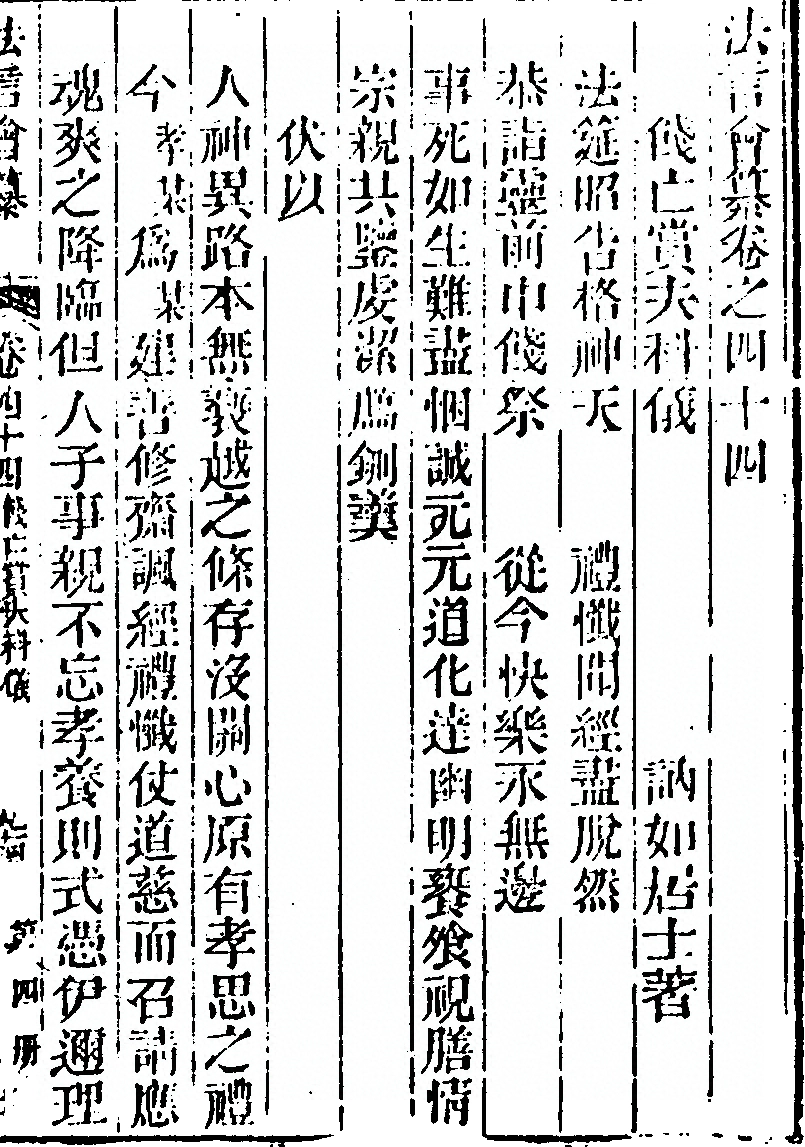 法言會纂卷之四十四
餞亡賞夫科儀 訥如居士著
法筵昭告格神天 禮懺開經盡脫然
恭詣靈前申餞祭 從今快樂永無邊
事死如生難盡悃誠元元道化達幽明饔飧視膳情
宗親共鑒虔潔薦鉶羹
伏以
人神異路本無褻越之條存沒關心原有孝思之禮
今孝某爲某建善修齋諷經禮懺仗道慈而召請應
魂爽之降臨但人子事親不忘孝養則式憑伊邇理
法言會纂 卷四十四餞亡賞夫科儀 第四册